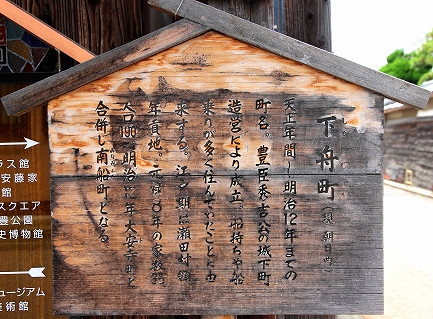 下舟町（現 朝日町）
しもふなちょう
天正年間～明治12年までの
町名。豊臣秀吉公の城下町
造営により成立。船持ちや船
乗りが多く住んでいたことに由
来する。江戸期は瀬田村組
年貢地。元禄8年の家数51、
人口188。明治12年大安寺町と
合併し南船町となる。
ラス館
安藤家
館
スクエア
豊公園
史博物館
ュージアム
美術館